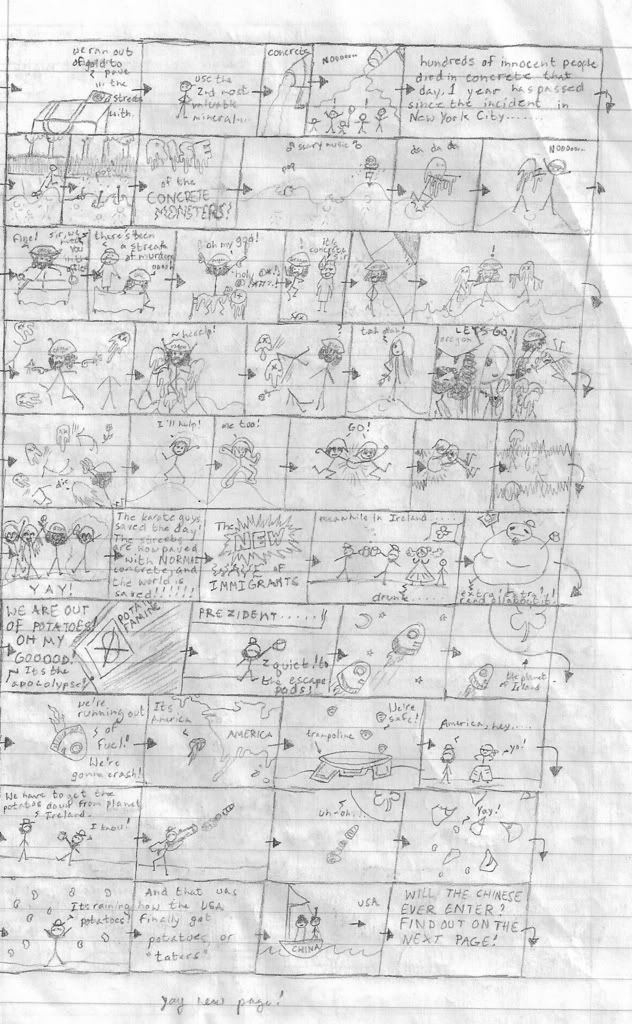 we ran out
of gold to
pave
the
streets
with.
use the
2nd most
valuable
mineral...
concrete
NOOOOOO...
hundreds of innocent people
died in concrete that
day. 1 year has passed
since the incident in
New York City.......
RISE
of the
CONCRETE
MONSTERS!
scary music
pop
da da da
NOOOOO...
Fine!
sir, we
need
you
there's been
a streak
of murders
oh my god!
it's
concrete
sir
!
heeelp!
?
tah dah!
LET'S GO
I'll help!
me too!
GO!
die
YAY!
The karate guys
saved the day!
The streets
are now paved
with NORMAL
concrete, and
the world is
saved!!!!!!
The
NEW
WAVE OF
IMMIGRANTS
meanwhile in Ireland......
drunk.....
extra! Extra!
read all about it!
WE ARE OUT
OF POTATOES!
OH MY
GOOOOD!
It's the
apocolypse!
POTATO
FAMINE
PREZIDENT......!!
quiet! to
the escape
pods!
the planet
of Irland
we're
running out
of fuel!
We're
gonna crash!
It's
America
AMERICA
We're
safe!
trampoline
America, hey....
yo!
We have to get the
potatos down from planet
Ireland.
I know!
uh-oh...
Yay!
It's raining
potatoes!
And that was
how the USA
finally got
potatoes, or
"taters"
CHINA
USA
WILL THE CHINESE
EVER ENTER?
FIND OUT ON THE
NEXT PAGE!
yay new page!